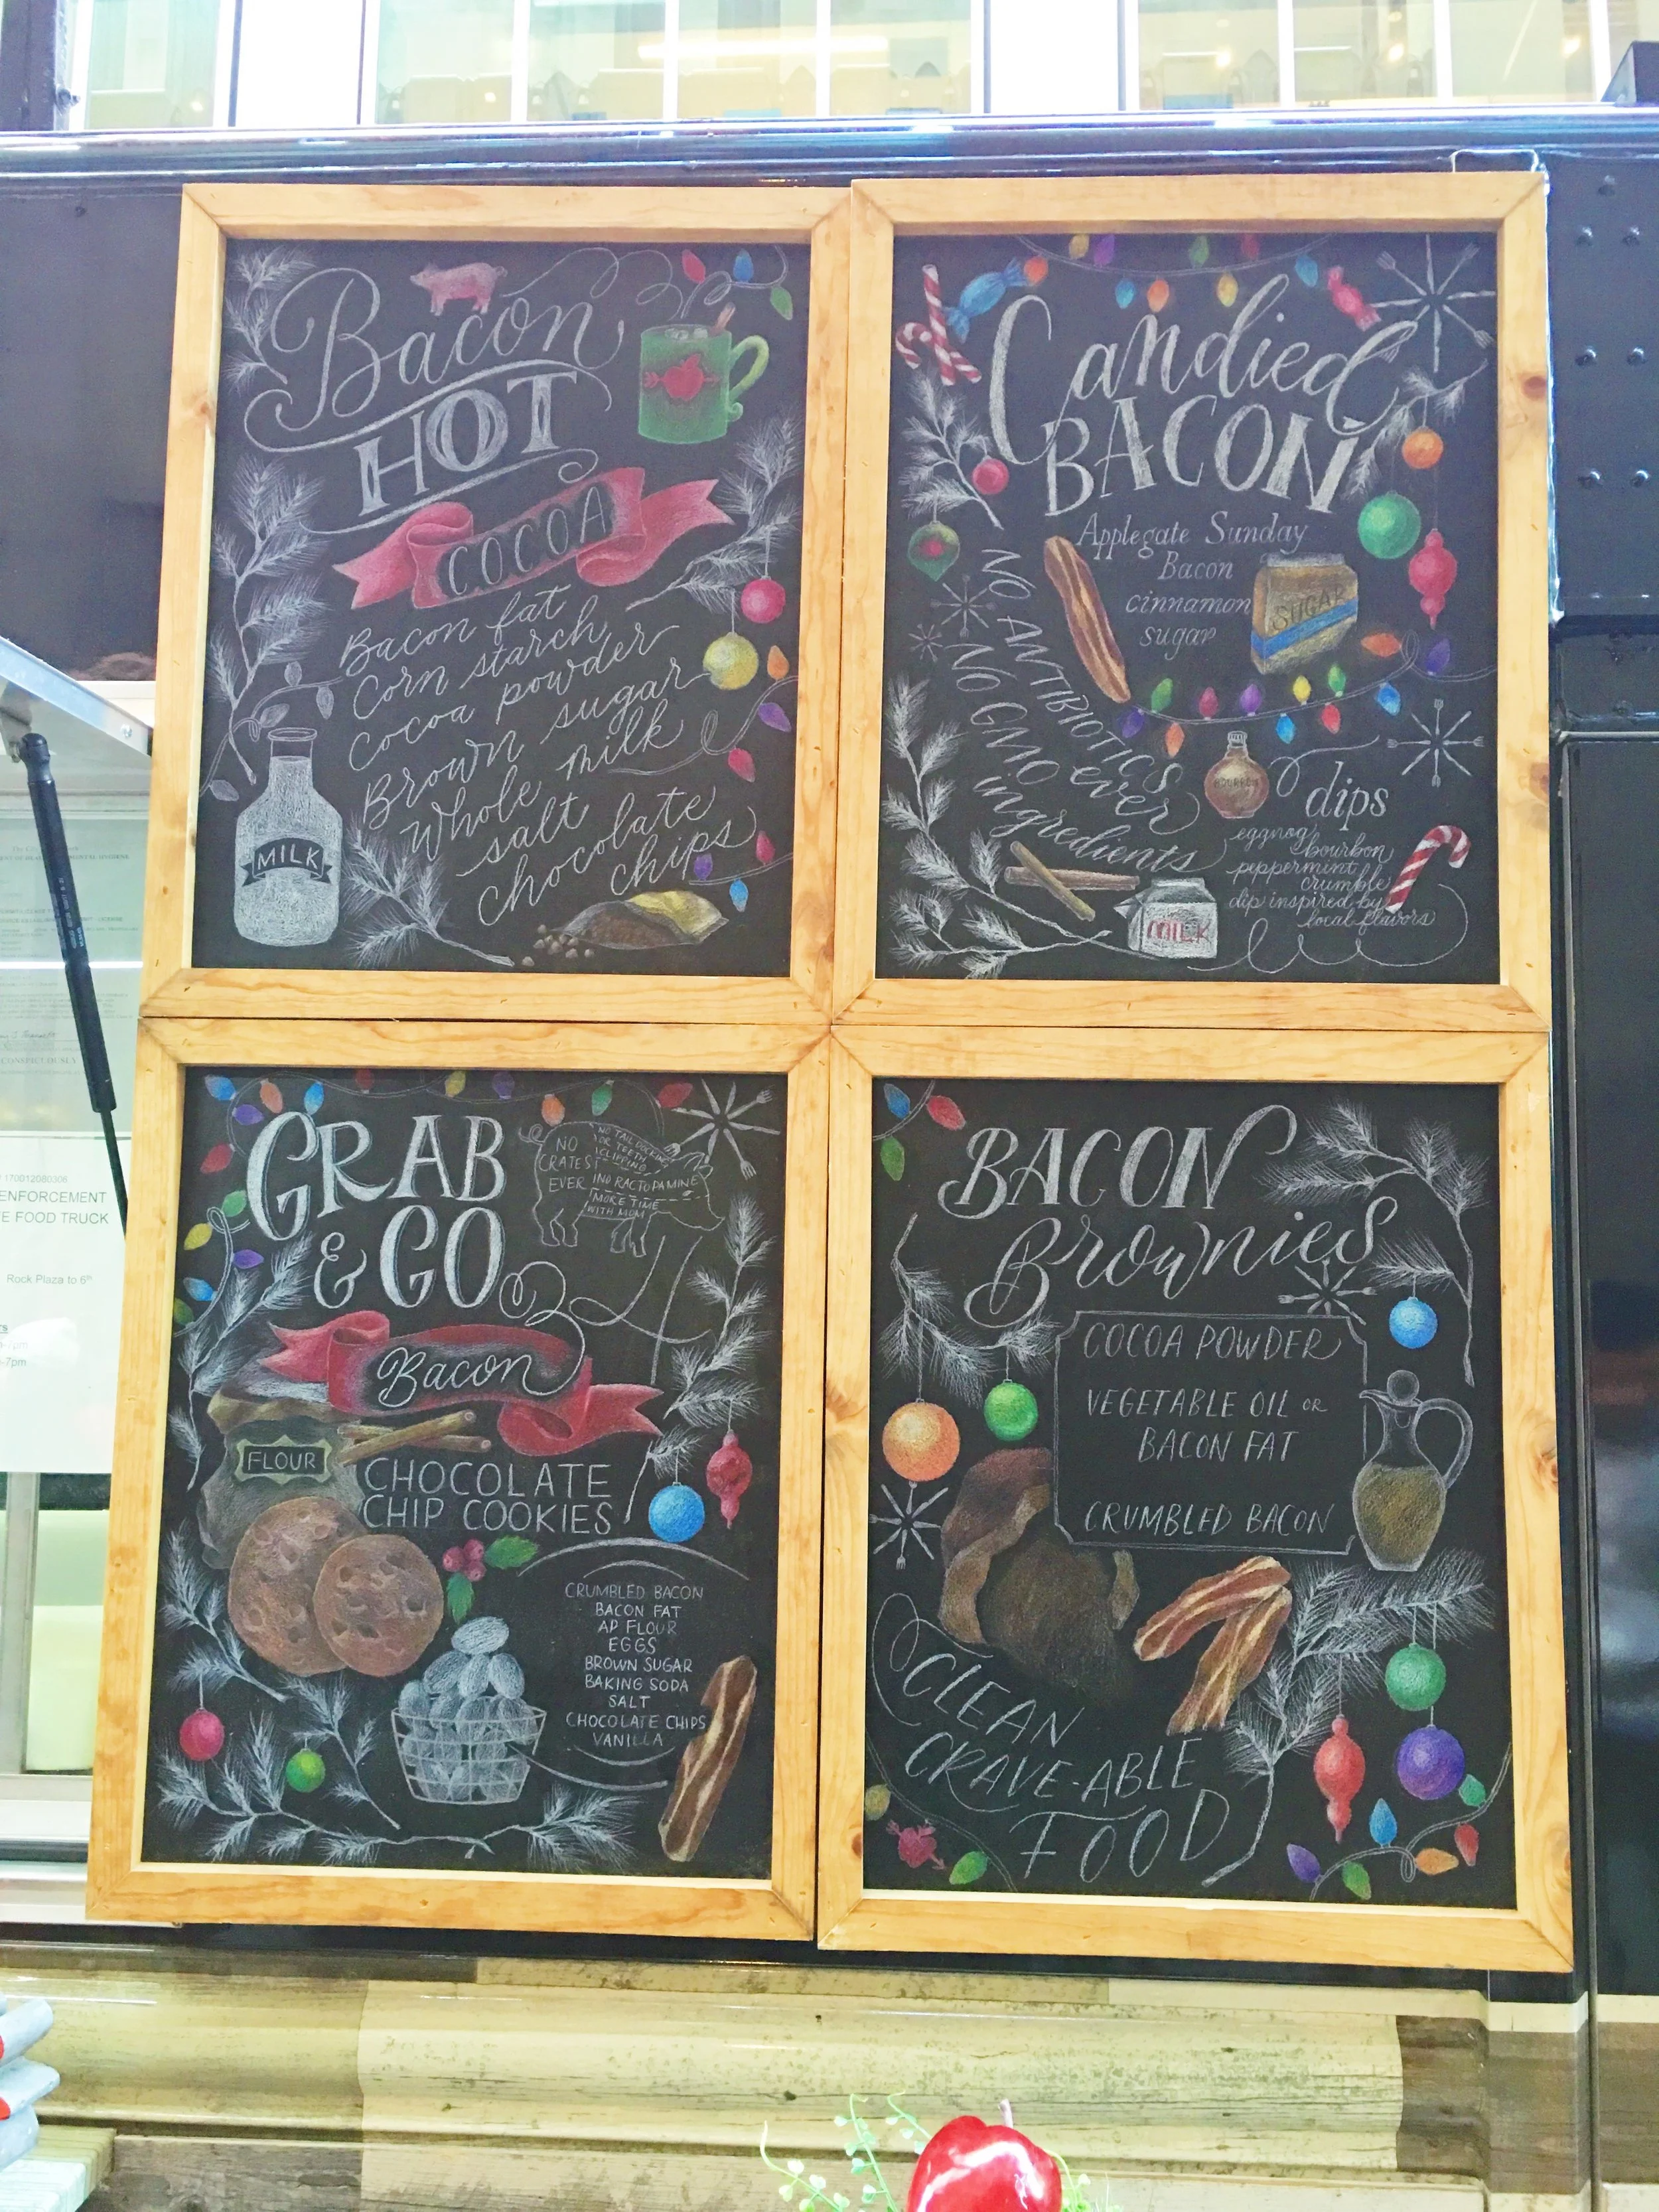 Bacon
HOT
COCOA
Bacon fat
Corn starch
Cocoa powder
Brown sugar
Whole milk
salt
chocolate
chips
MILK
Candied
BACON
Applegate Sunday
Bacon
cinnamon
sugar
SUGAR
NO ANTIBIOTICS
ever
NO GMO
ingredients
BOURBON
dips
eggnog
bourbon
peppermint
crumble
dip inspired by
local flavors
MILK
GRAB
& GO
NO
CRATES
EVER
NO TAIL DOCKING
OR TEETH
CLIPPING
NO RACTOPAMINE
MORE TIME
WITH MOM
Bacon
FLOUR
CHOCOLATE
CHIP COOKIES
CRUMBLED BACON
BACON FAT
AP FLOUR
EGGS
BROWN SUGAR
BAKING SODA
SALT
CHOCOLATE CHIPS
VANILLA
BACON
Brownies
COCOA POWDER
VEGETABLE OIL OR
BACON FAT
CRUMBLED BACON
CLEAN
CRAVE-ABLE
FOOD
CONSPICUOUSLY
170012080306
ENFORCEMENT
E FOOD TRUCK
Rock Plaza to 6th
-7pm
-7pm